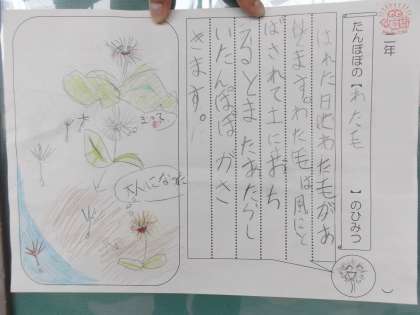 二年
たんぽぽの【わた毛】のひみつ
はれた日にわた毛がお
けます。わた毛は風にと
ばされて土におち
るとまたあたらし
いたんぽぽがさ
きます。
大人になった